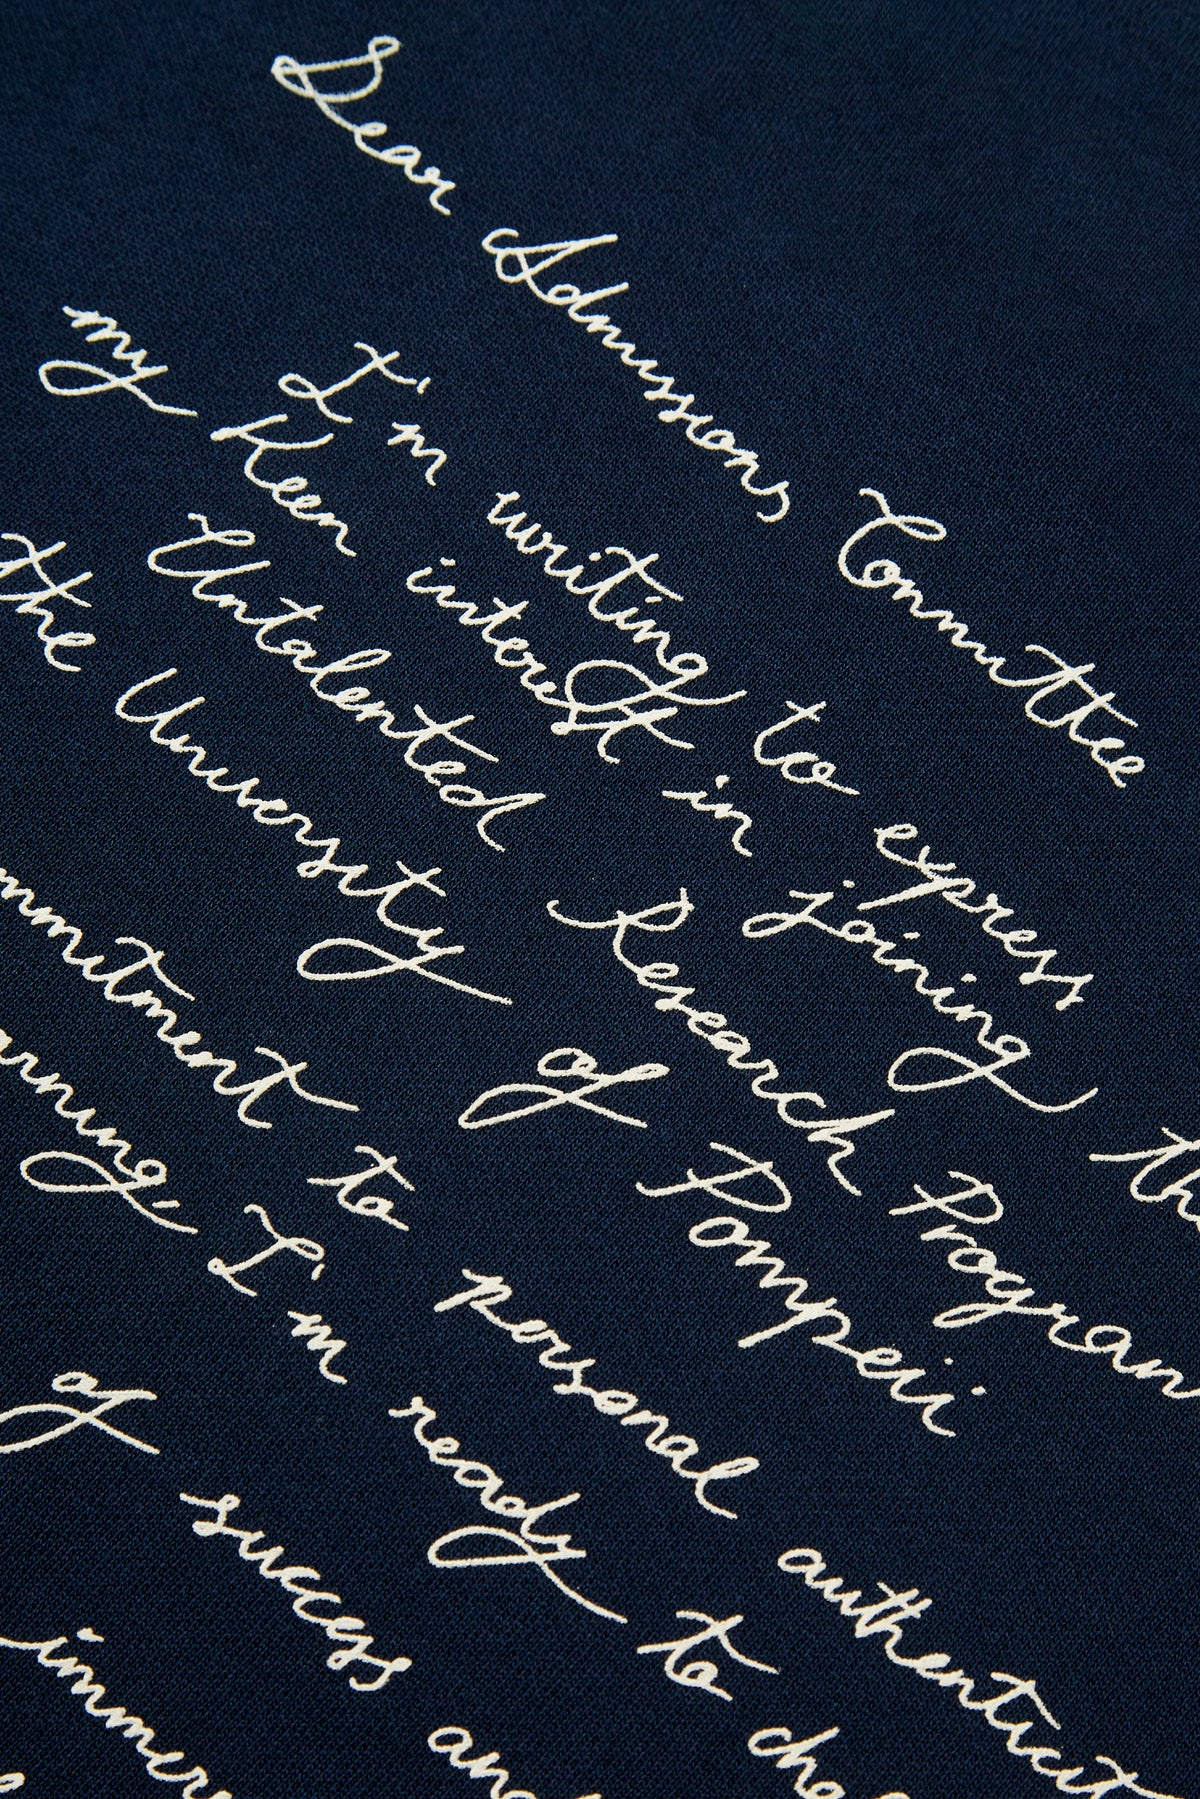 Dear Admissions, Committee
I'm writing to express
my Keen interest in joining th
Untalented Research Program
the University of Pompeii
mmitment to personal authenticit
arning, I'm ready to cha
of success and
immer